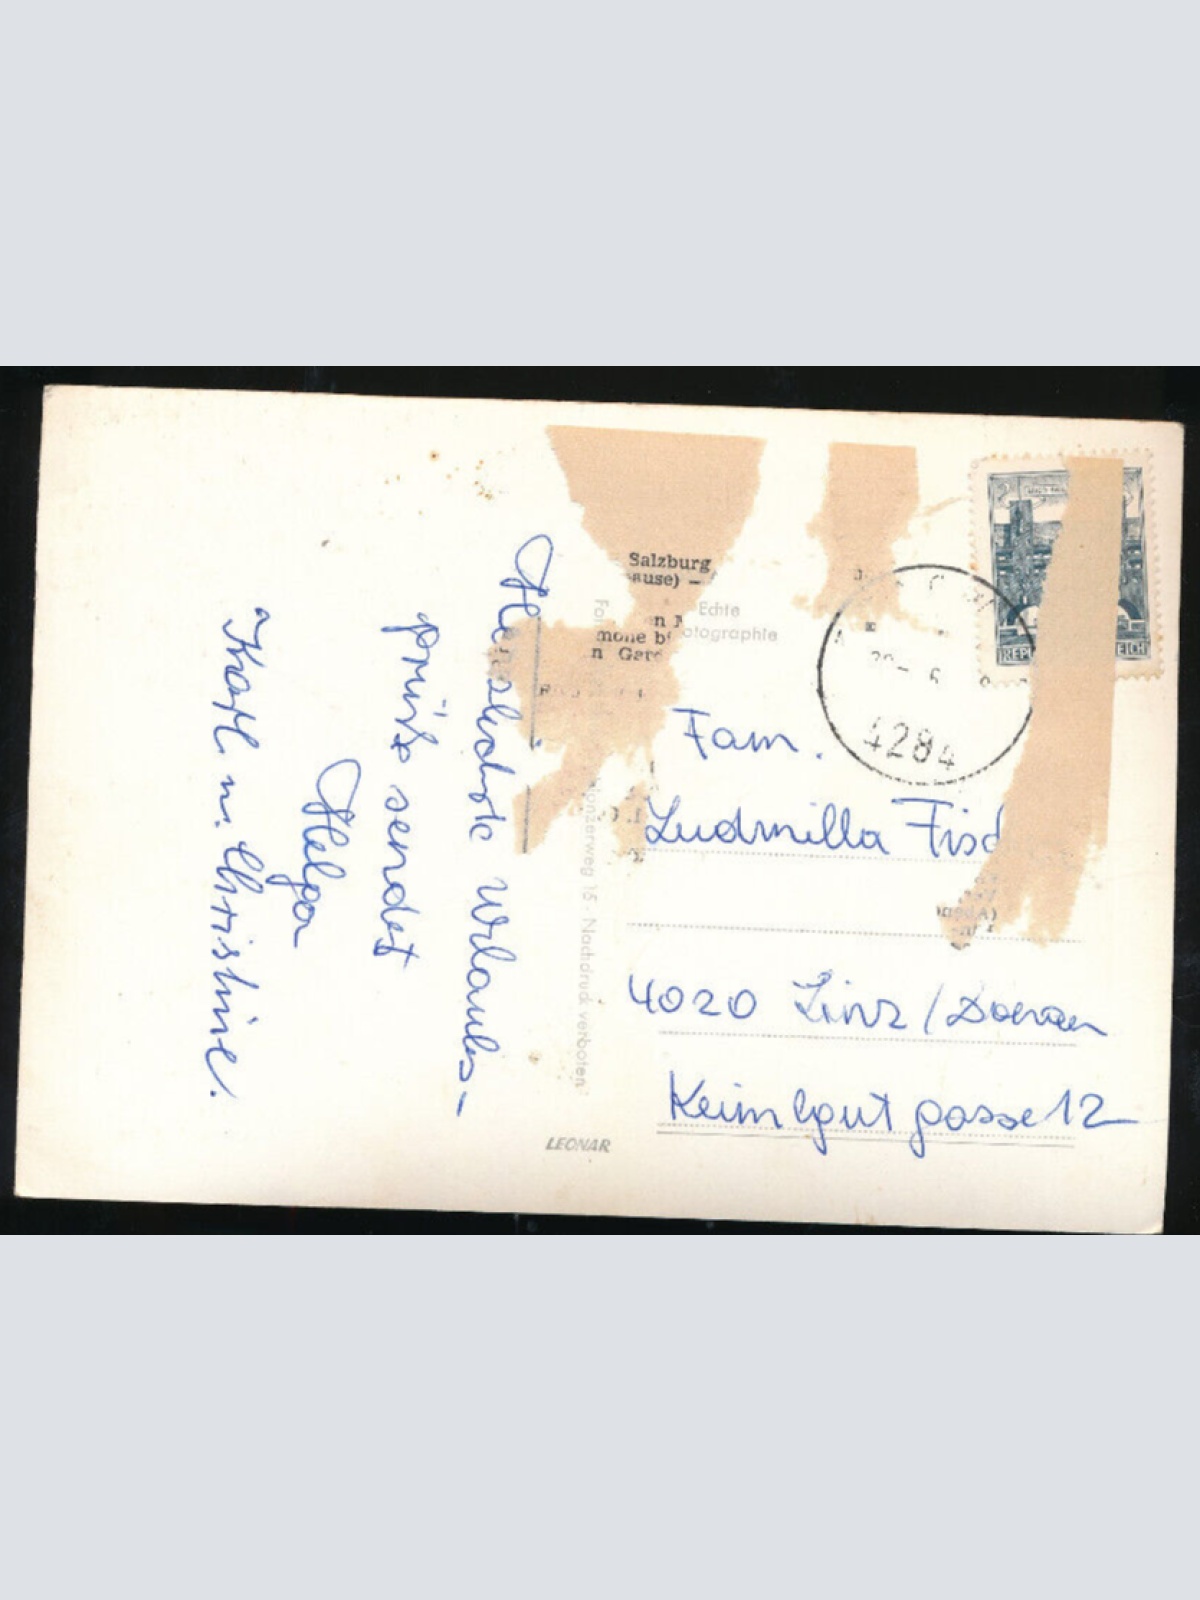 Herzlichste Urlaubs-
grüße sendet
Helga
Karl u. Christine.
Salzburg
ause) –
en
mone b
n Gar
Echte
otographie
Nachdruck verboten
LEONAR
2
REP
EICH
4284
Fam.
Ludmilla Fisc
4020 Linz /
Keimlgutgasse 12